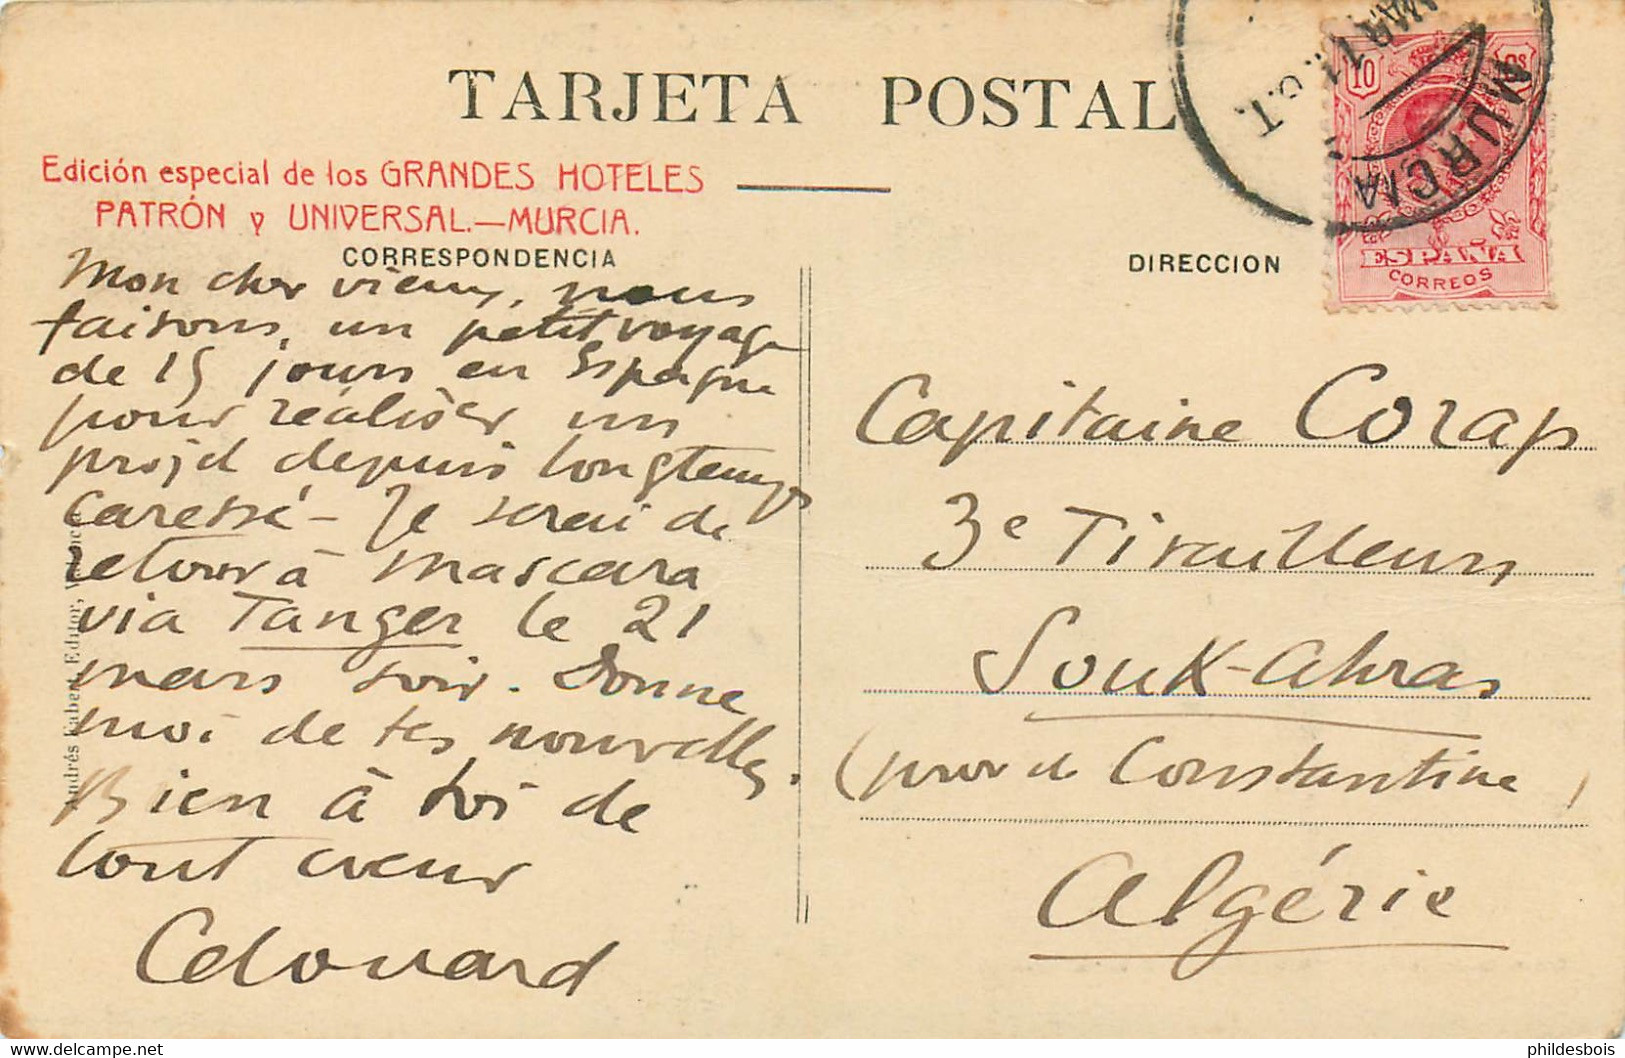 TARJETA POSTAL
Edición especial de los GRANDES HOTELES
PATRÓN y UNIVERSAL.—MURCIA.
CORRESPONDENCIA
Mon cher vieux, nous
faisons un petit voyage
de 15 jours en Espagne
pour réaliser un
projet depuis longtemps
caressé – Je serai de
retour à Mascara
via Tanger le 21
mars soir. Donne
moi de tes nouvelles.
Bien à toi de
tout cœur
Edouard
Andrés Fabert, Editor,
DIRECCION
Capitaine Corap
3e Tirailleurs
Souk-Ahras
(prov de Constantine)
Algérie
10
ESPAÑA
CORREOS
MURCIA
MAR 1
philde​sbois